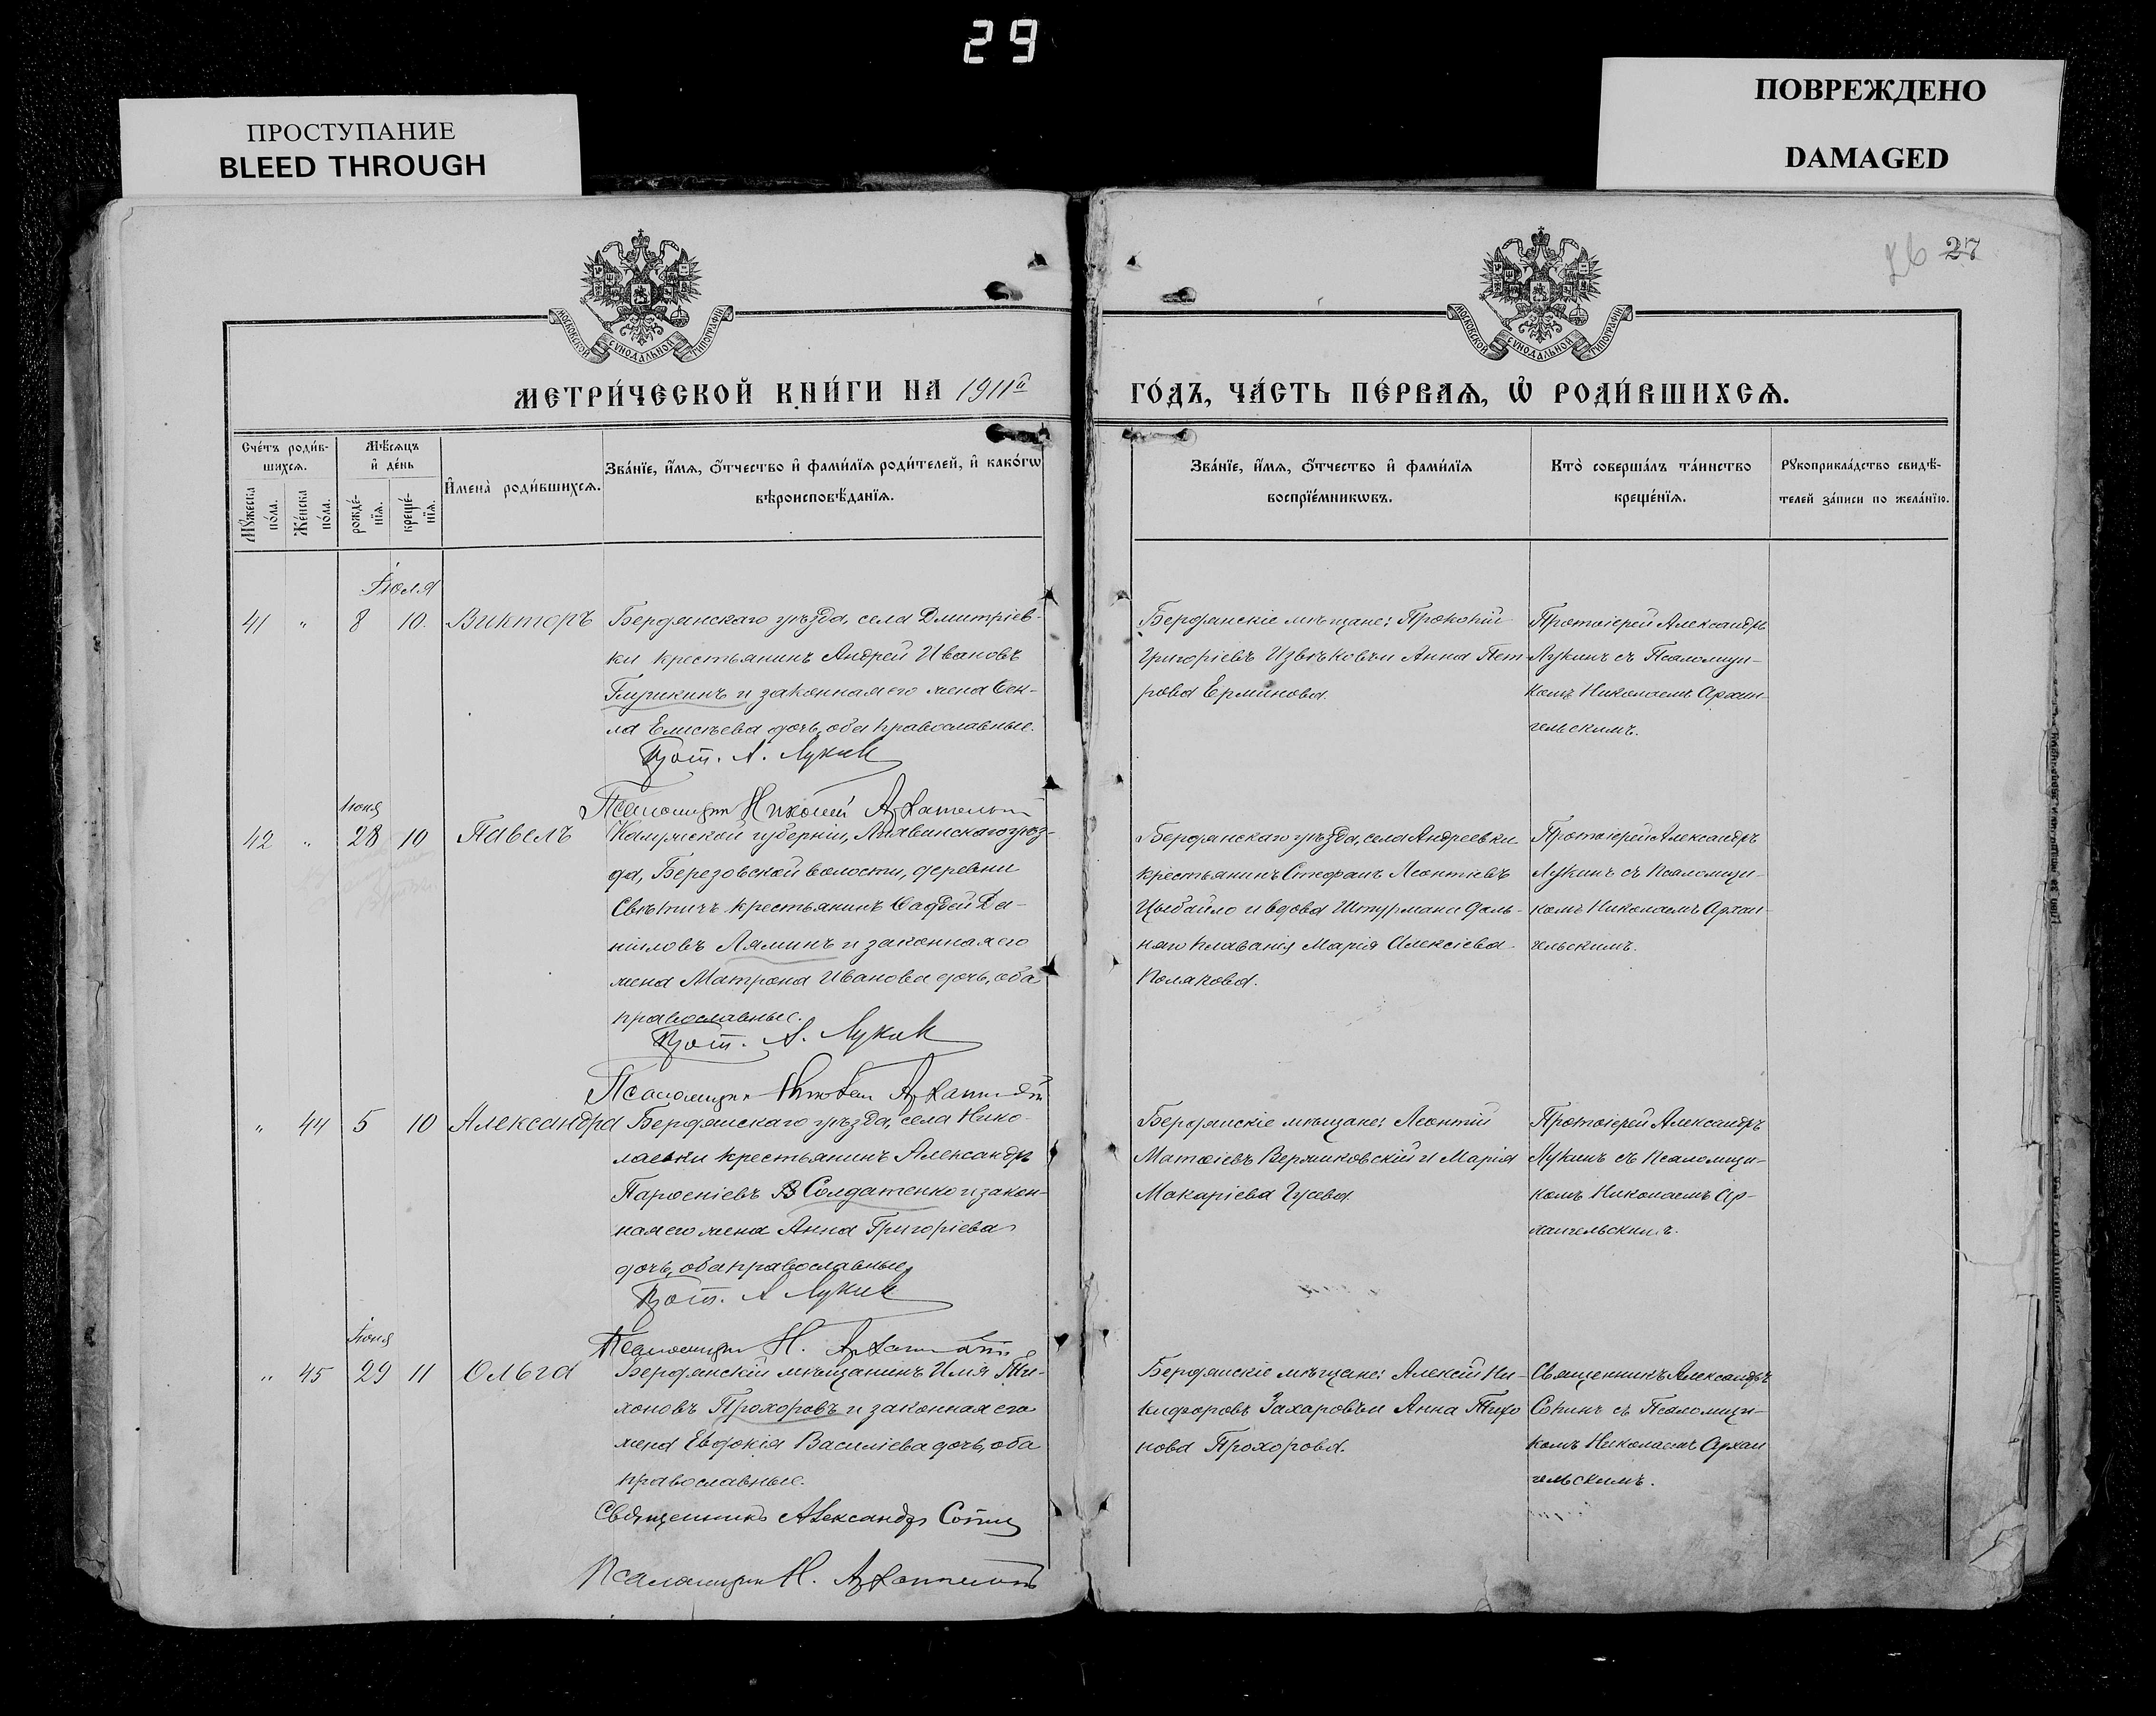 29
ПРОСТУПАНИЕ
BLEED THROUGH
ПОВРЕЖДЕНО
DAMAGED
26 27
МОСКОВСКОЙ СУНОДАЛЬНОЙ ТИПОГРАФІИ
МОСКОВСКОЙ СУНОДАЛЬНОЙ ТИПОГРАФІИ
МЕТРИ́ЧЕСКОЙ КНИ́ГИ НА 1911й
ГО́ДЪ, ЧА́СТЬ ПЕ́РВАѦ, Ѡ҆ РОДИ́ВШИХСѦ.
Сче́тъ роди́в-
шихсѧ.
Мꙋ́жеска по́ла.
Же́нска по́ла.
Мѣ́сѧцъ
и҆ де́нь
рожде́-
нїѧ.
креще́-
нїѧ.
И҆мена̀ роди́вшихсѧ.
Зва́нїе, и҆́мѧ, ѻ҆́тчество и҆ фами́лїѧ роди́телей, и҆ како́гѡ
вѣроисповѣ́данїѧ.
Зва́нїе, и҆́мѧ, ѻ҆́тчество и҆ фами́лїѧ
воспрїе́мникѡвъ.
Кто̀ соверша́лъ та́инство
креще́нїѧ.
Рꙋкоприкла́дство свидѣ́-
телей за́писи по жела́нїю.
Іюля
41 " 8 10. Викторъ
Бердянскаго уѣзда, села Дмитріев-
ки крестьянинъ Андрей Ивановъ
Глушкинъ и законная его жена Ѳек-
ла Елисѣева дочь, оба православные.
Прот. А. Лукин
Псаломщик Николай Архангельский
Бердянскіе мѣщане: Прокопій
Григоріевъ Извѣковъ и Анна Пет
рова Ерминова.
Протоіерей Александръ
Лукинъ съ Псаломщи-
комъ Николаемъ Архан-
гельскимъ.
Іюня
42 " 28 10 Павелъ
Калужской губерніи, уѣз-
да, Березовской волости, деревни
крестьянинъ Ѳаддей Да-
ниловъ Ляминъ и законная его
жена Матрона Иванова дочь, оба
православные.
Прот. А. Лукин
Псаломщик Николай Архангельский
Бердянскаго уѣзда, села Андреевки
крестьянинъ Стефанъ Леонтіевъ
Цыбайло и вдова Штурмана даль-
няго плаванія Марія Алексіева
Полякова.
Протоіерей Александръ
Лукинъ съ псаломщи-
комъ Николаемъ Архан
гельскимъ.
" 44 5 10 Александра
Бердянскаго уѣзда, села Нико-
лаевки крестьянинъ Александръ
Парѳеніевъ Солдатенко и закон-
ная его жена Анна Григоріева
дочь, оба православные,
Прот. А Лукин
Псаломщик Н. Архангельский
Бердянскіе мѣщане: Леонтій
Матѳіевъ Вержиковскій и Марія
Макаріева Гусева.
Протоіерей Александръ
Лукинъ съ псаломщи-
комъ Николаемъ Ар-
хангельскимъ.
Іюня
" 45 29 11 Ольга
Бердянскій мѣщанинъ Илія Ти-
хоновъ Прохоровъ и законная его
жена Евдокія Василіева дочь, оба
православные.
Священникъ Александръ Сокин
Псаломщик Н. Архангельский
Бердянскіе мѣщане: Алексій Ни-
кифоровъ Захаровъ и Анна Тихо
нова Прохорова.
Священникъ Александръ
Сокинъ съ Псаломщи-
комъ Николаемъ Архан
гельскимъ.